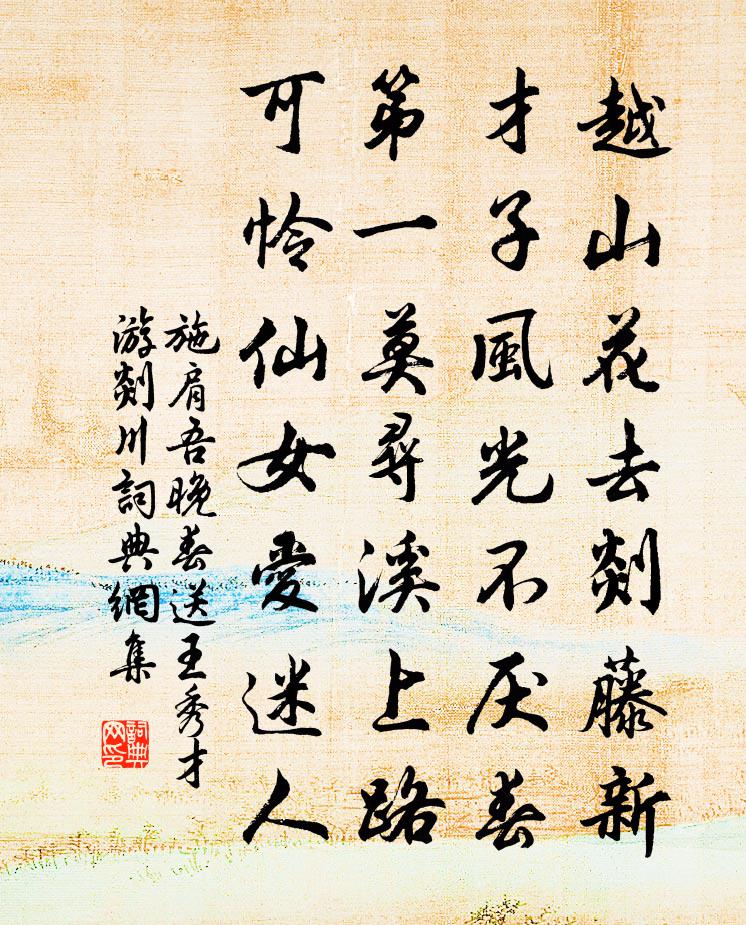 越山花去剡藤新
才子風光不厌春
第一莫尋溪上路
可怜仙女愛迷人
施肩吾晚春送王秀才
游剡川詞典網集
詞典网印